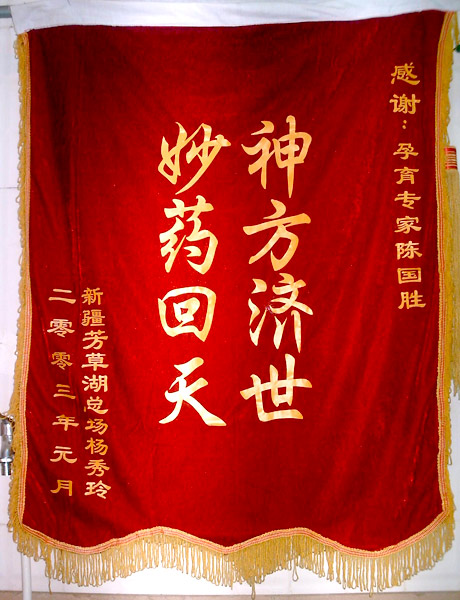 感谢：孕育专家陈国胜
神方济世
妙药回天
新疆芳草湖总场杨秀玲
二零零三年元月